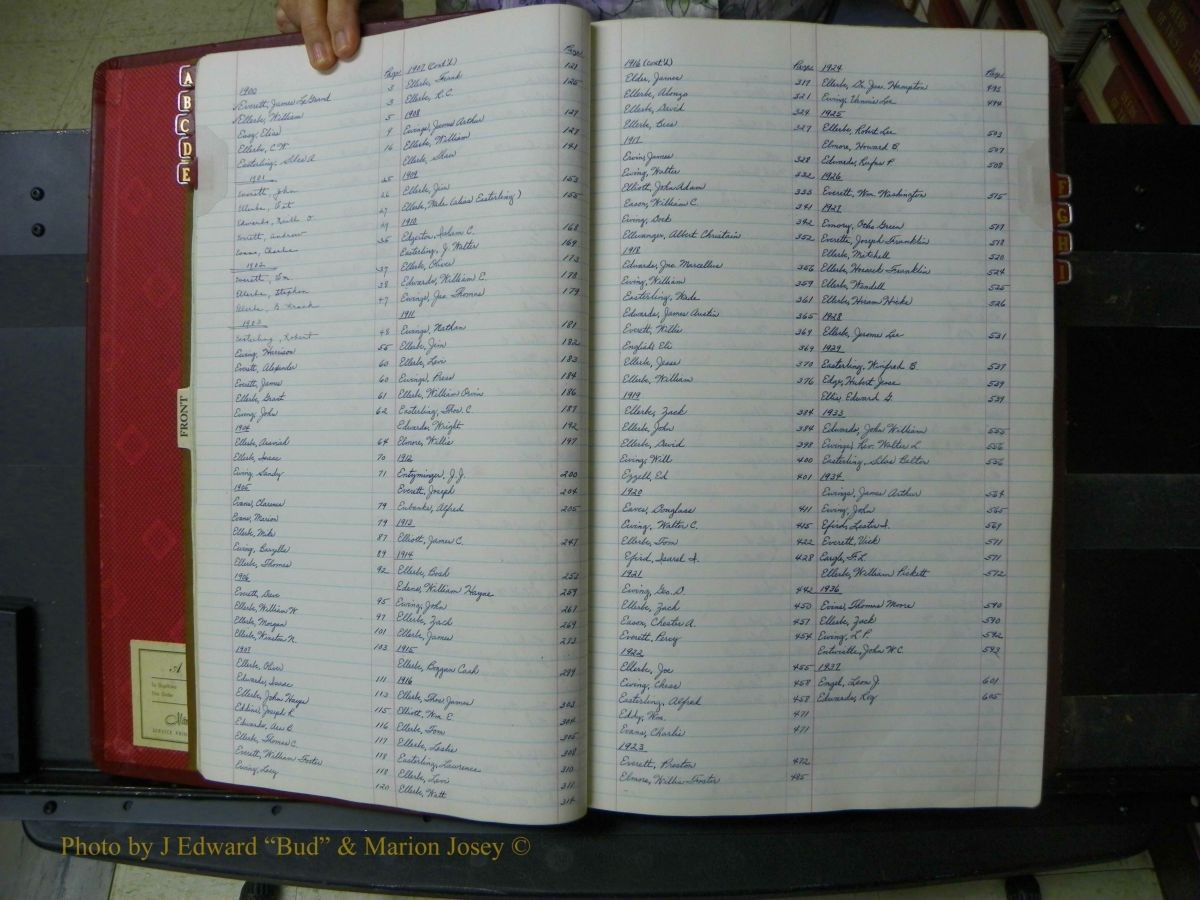 A
B
C
D
E
FRONT
Page
1900
Everett, James LeGrand 3
Ellerbe, William 3
Easy, Elias 5
Ellerbe, C.W. 9
Easterling, Silas A. 16
1901
Everett, John 25
Ellerbe, Pat 26
Edwards, Keith O. 27
Everett, Andrew
Evans, Charlie 35
1902
Everett, 37
Ellerbe, Stephen 38
Ellerbe, B. Frank 47
1903
Easterling, Robert 48
Ewing, Harrison 55
Everett, Alexander 60
Everett, James 60
Ellerbe, Grant 61
Ewing, John 62
1904
Ellerbe, 64
Ellerbe, Isaac 70
Ewing, Sandy 71
1905
Evans, Clarence 79
Evans, Marion 79
Ellerbe, Mike 87
Ewing, 89
Ellerbe, Thomas 92
1906
Everett, Dave 95
Ellerbe, William W. 97
Ellerbe, Morgan 101
Ellerbe, Winston N. 103
1907
Ellerbe, Oliver 111
Edwards, Isaac 113
Ellerbe, John Hayes 115
Eddins, Joseph R. 116
Edwards, Asa B. 117
Ellerbe, Thomas C. 118
Everett, William Foster 118
Ewing, Lacy 120
1907 (cont'd) Page
Ellerbe, Frank 121
Ellerbe, R.C. 125
1908
Ewings, James Arthur 127
Ellerbe, William 127
Ellerbe, Shaw 141
1909
Ellerbe, Jim 153
Ellerbe, Wale (alias Easterling) 155
1910
Edgerton, Isham C. 168
Easterling, J. Walter 169
Ellerbe, Oliver 173
Edwards, William E. 178
Ewings, Jas. Thomas 179
1911
Ewings, Nathan 181
Ellerbe, Jim 182
Ellerbe, Levi 183
Ewings, Press 184
Ellerbe, William Orvin 186
Easterling, Thos. C. 187
Edwards, Wright 192
Elmore, Willie 197
1912
Entzminger, J.J. 200
Everett, Joseph 204
Eubanks, Alfred 205
1913
Elliott, James C. 247
1914
Ellerbe, Bosh 258
Edens, William Hayne 259
Ewing, John 267
Ellerbe, Zach 269
Ellerbe, James 273
1915
Ellerbe, Boggan Cash 289
1916
Ellerbe, Thos. James 303
Elliott, Wm. E. 304
Ellerbe, Tom 305
Ellerbe, Leslie 308
Easterling, Lawrence 310
Ellerbe, Levi 311
Ellerbe, Watt 314
1916 (cont'd) Page
Elder, James 317
Ellerbe, Alonzo 321
Ellerbe, David 324
Ellerbe, Bess 327
1917
Ewin, James 328
Ewing, Walter 332
Elliott, John Adam 333
Eason, William C. 341
Ewing, Dock 342
Ellwanger, Albert Christain 352
1918
Edwards, Jno. Marcellus 356
Ewing, William 359
Easterling, Wade 361
Edwards, James Austin 365
Everett, Willie 369
English, Eli 369
Ellerbe, Jesse 370
Ellerbe, William 376
1919
Ellerbe, Zack 384
Ellerbe, John 384
Ellerbe, David 398
Ewing, Will 400
Ezzell, Ed 401
1920
Eaves, Douglass 411
Ewing, Walter C. 415
Ellerbe, Tom 422
Efird, Israel I. 428
1921
Ewing, Geo. D. 442
Ellerbe, Zack 450
Eason, Chester A. 457
Everett, Percy 454
1922
Ellerbe, Joe 455
Ewing, Chess 458
Easterling, Alfred 458
Eddy, Wm. 471
Evans, Charlie 471
1923
Everett, Preston 472
Elmore, Willie Foster 485
1924 Page
Ellerbe, Sr. Jas. Hampton 493
Ewing, Vannie Lee 494
1925
Ellerbe, Robert Lee 503
Elmore, Howard B. 507
Edwards, Rufus F. 508
1926
Everett, Wm. Washington 575
1927
Emory, Otho Green 517
Everette, Joseph Franklin 518
Ellerbe, Mitchell 520
Ellerbe, Franklin 524
Ellerbe, Wendell 525
Ellerbe, Hiram Hicks 526
1928
Ellerbe, Jerome Lee 531
1929
Easterling, Winfred B. 537
Edge, Hubert Jesse 539
Ellis, Edward G. 539
1933
Edwards, John William 555
Ewings, Rev. Walter L. 556
Easterling, Silas Belton 556
1934
Ewings, James Arthur 564
Ewing, John 565
Efird, Lester I. 569
Everett, Vick 571
Eargle, F.L. 571
Ellerbe, William Pickett 572
1936
Evans, Thomas Moore 590
Ellerbe, Zack 590
Ewing, L.P. 592
Entwistle, John W.C. 593
1937
Engel, Leon J. 601
Edwards, Roy 605
F
G
H
I
Photo by J Edward “Bud” & Marion Josey ©